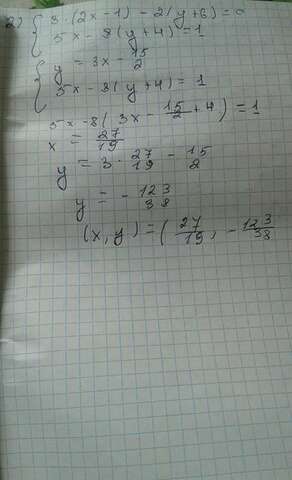 2) { 3·(2x-1)-2(y+6)=0
5x-8(y+4)=1
{ y=3x-15/2
5x-8(y+4)=1
5x-8(3x-15/2+4)=1
x=27/19
y=3·27/19-15/2
y=-123/38
(x,y)=(27/19,-123/38